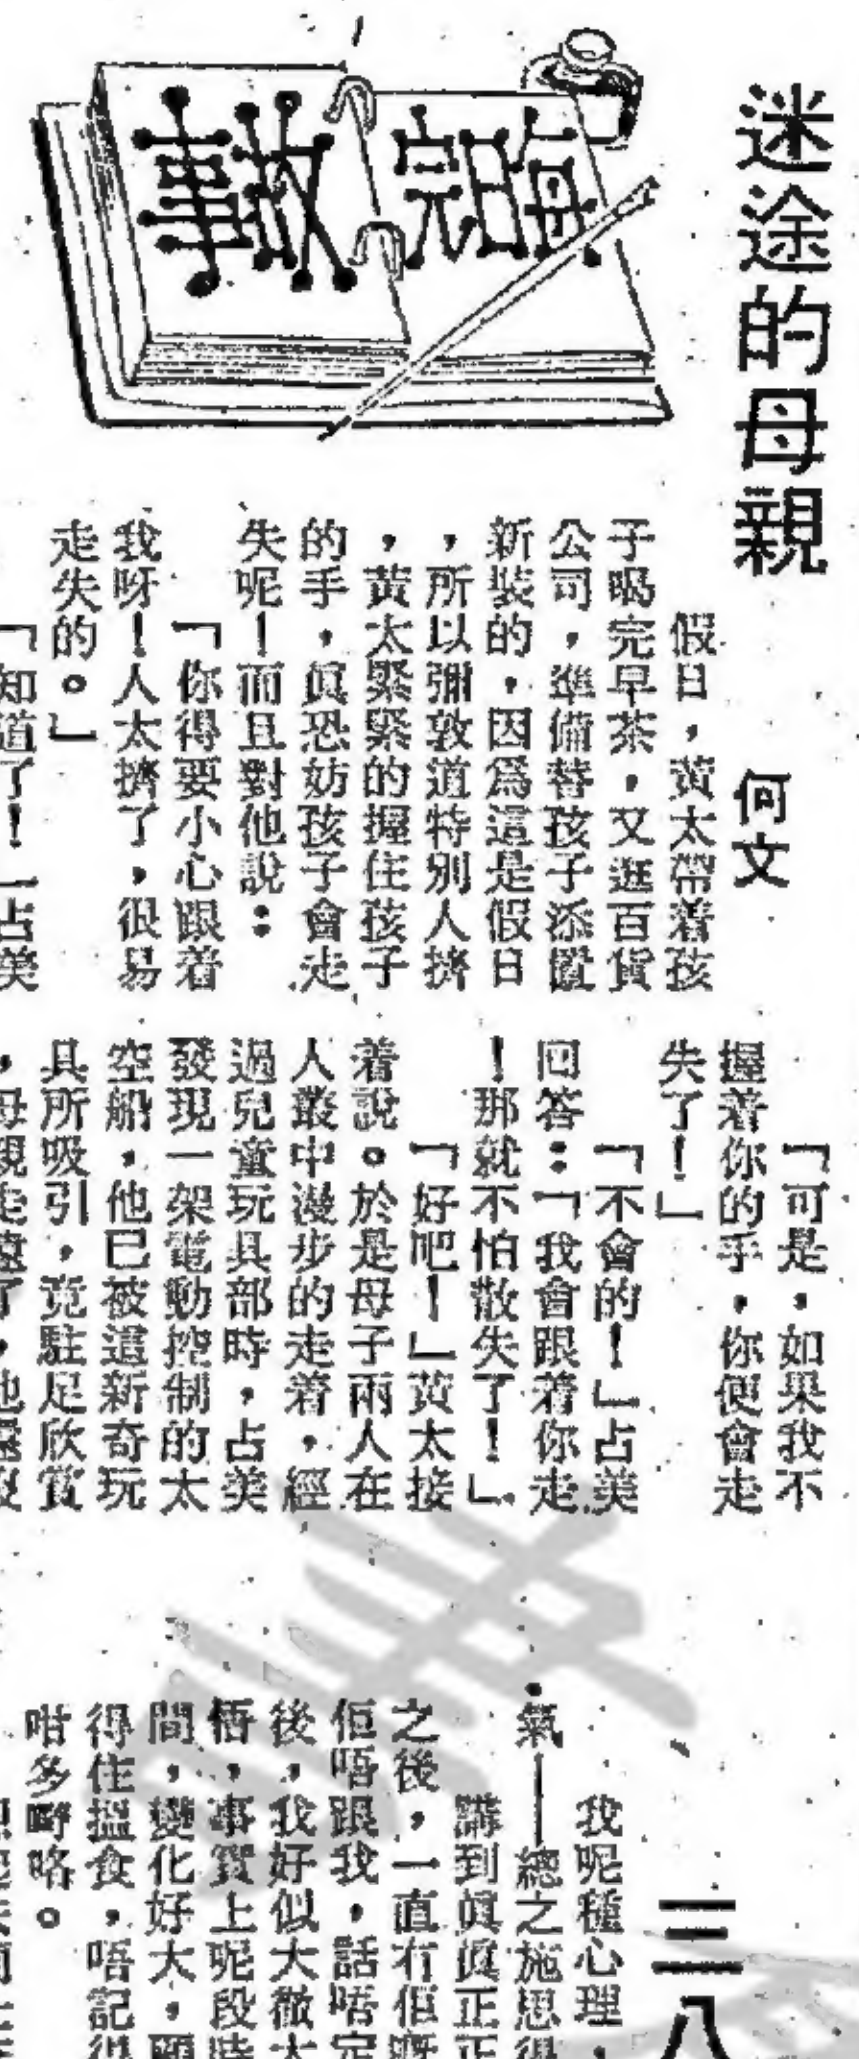 迷途的母親
何文
每日完
故事
假日，黃太帶着孩
子喝完早茶，又逛百貨
公司，準備替孩子添置
新裝的，因爲這是假日
，所以彌敦道特別人擠
，黃太緊緊的握住孩子
的手，眞恐妨孩子會走
失呢！而且對他說：
「你得要小心跟着
我呀！人太擠了，很易
走失的。」
「知道了！」占美
「可是，如果我不
握着你的手，你便會走
失了！」
「不會的！」占美
回答：「我會跟着你走
！那就不怕散失了！」
「好吧！」黃太接
着說。於是母子兩人在
人叢中漫步的走着，經
過兒童玩具部時，占美
發現一架電動控制的太
空船，他已被這新奇玩
具所吸引，竟駐足欣賞
，母親走遠了，他還
三八
我呢種心理，
氣——總之施思得
講到眞眞正正
之後，一直冇佢嘅
佢唔跟我，話唔定
後，我好似大徹大
悟，事實上呢段時
間，變化好大，顧
得住搵食，唔記得
咁多嘢咯。